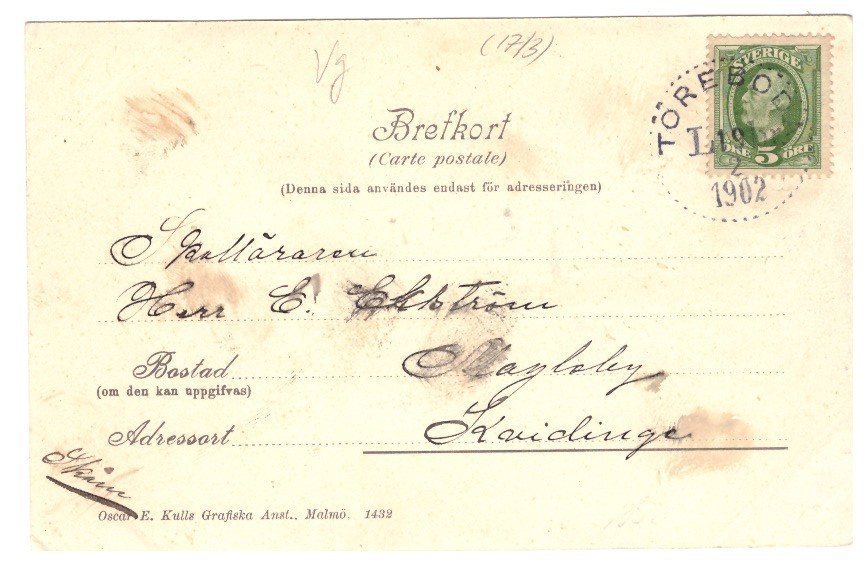 Vg (17/3)
SVERIGE
TÖREBOD
1902
5 ÖRE
Brefkort
(Carte postale)
(Denna sida användes endast för adresseringen)
Skolläraren
Herr E. Ekström
Bostad
(om den kan uppgifvas)
Adressort
Kvidinge
Skåne
Oscar E. Kulls Grafiska Anst.. Malmö. 1432